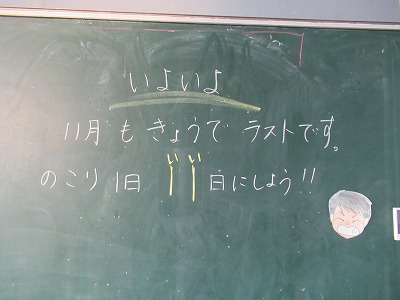 いよいよ
11月もきょうでラストです。
のこり1日 いい日にしよう!!